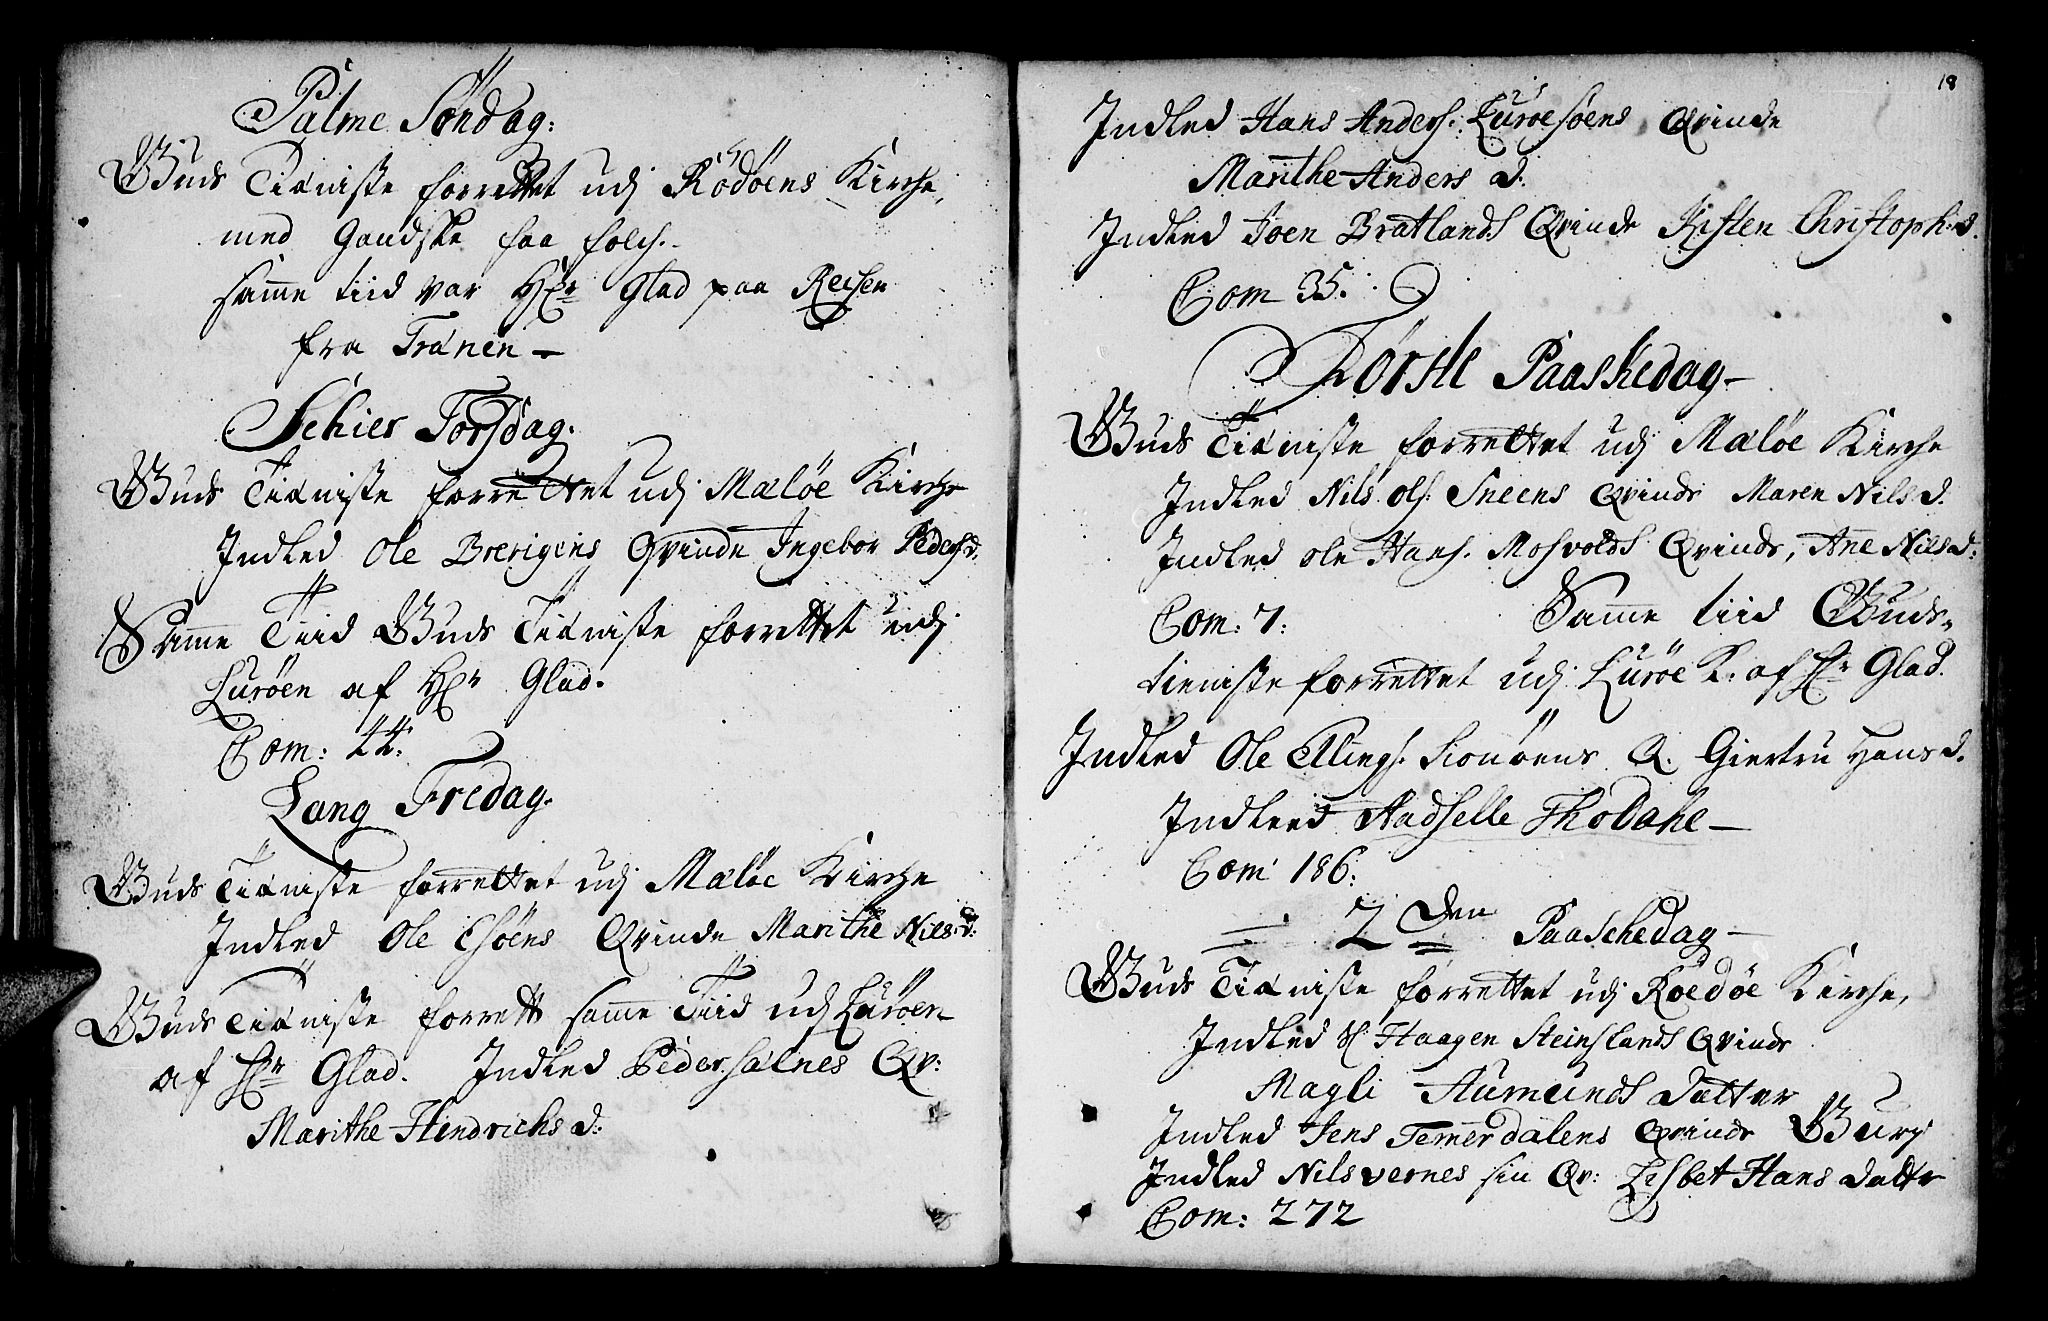 Palme Søndag:
Guds Tieniste forrettet udj Rödöens Kirche,
med Gandske faa folch.
samme tiid var Hr Glad paa Reisen
fra Trænen —
Schier Torsdag.
Guds Tieniste forrettet udj Meløe Kirche
Indled Ole Brerigens Qvinde Ingebor Peders d.
Samme Tiid Guds Tieniste forrettet udj
Lurøen af Hr Glad.
Com: 44:
Lang Fredag.
Guds Tieniste forrettet udj Meløe Kirche
Indled Ole Esøens Qvinde Marithe Nils d:
Guds Tieniste forrett samme Tiid udj Lurøen
af Hr Glad. Indled Peder Salnes Qv:
Marithe Hendrichs d:
18
Indled Hans Anders: Lurøesøens Qvinde
Marithe Anders d.
Indled Joen Bratlands Qvinde Kisten Christoph: d.
Com 35.
Første Paaskedag —
Guds Tieniste forrettet udj Meløe Kirche
Indled Nils Ols: Sneens Qvinde Maren Nils d.
Indled Ole Hans. Mosvolds Qvinde, Ane Nils d:
Com: 7: Samme tiid Guds-
tieniste forrettet udj Lurøe K: af Hr Glad.
Indled Ole Ellings. Q. Giertru Hans d.
Indleed Aadselle Thodahe —
Com 186:
2 Den Paaschedag —
Guds Tieniste forrettet udj Roedøe Kirche,
Indled Haagen Steinslands Qvinde
Magli Aumunds Datter
Indled Jens Temerdalens Qvinde Gurj
Indled Nils vernes sin Qv: Lisbet Hans datter
Com: 272